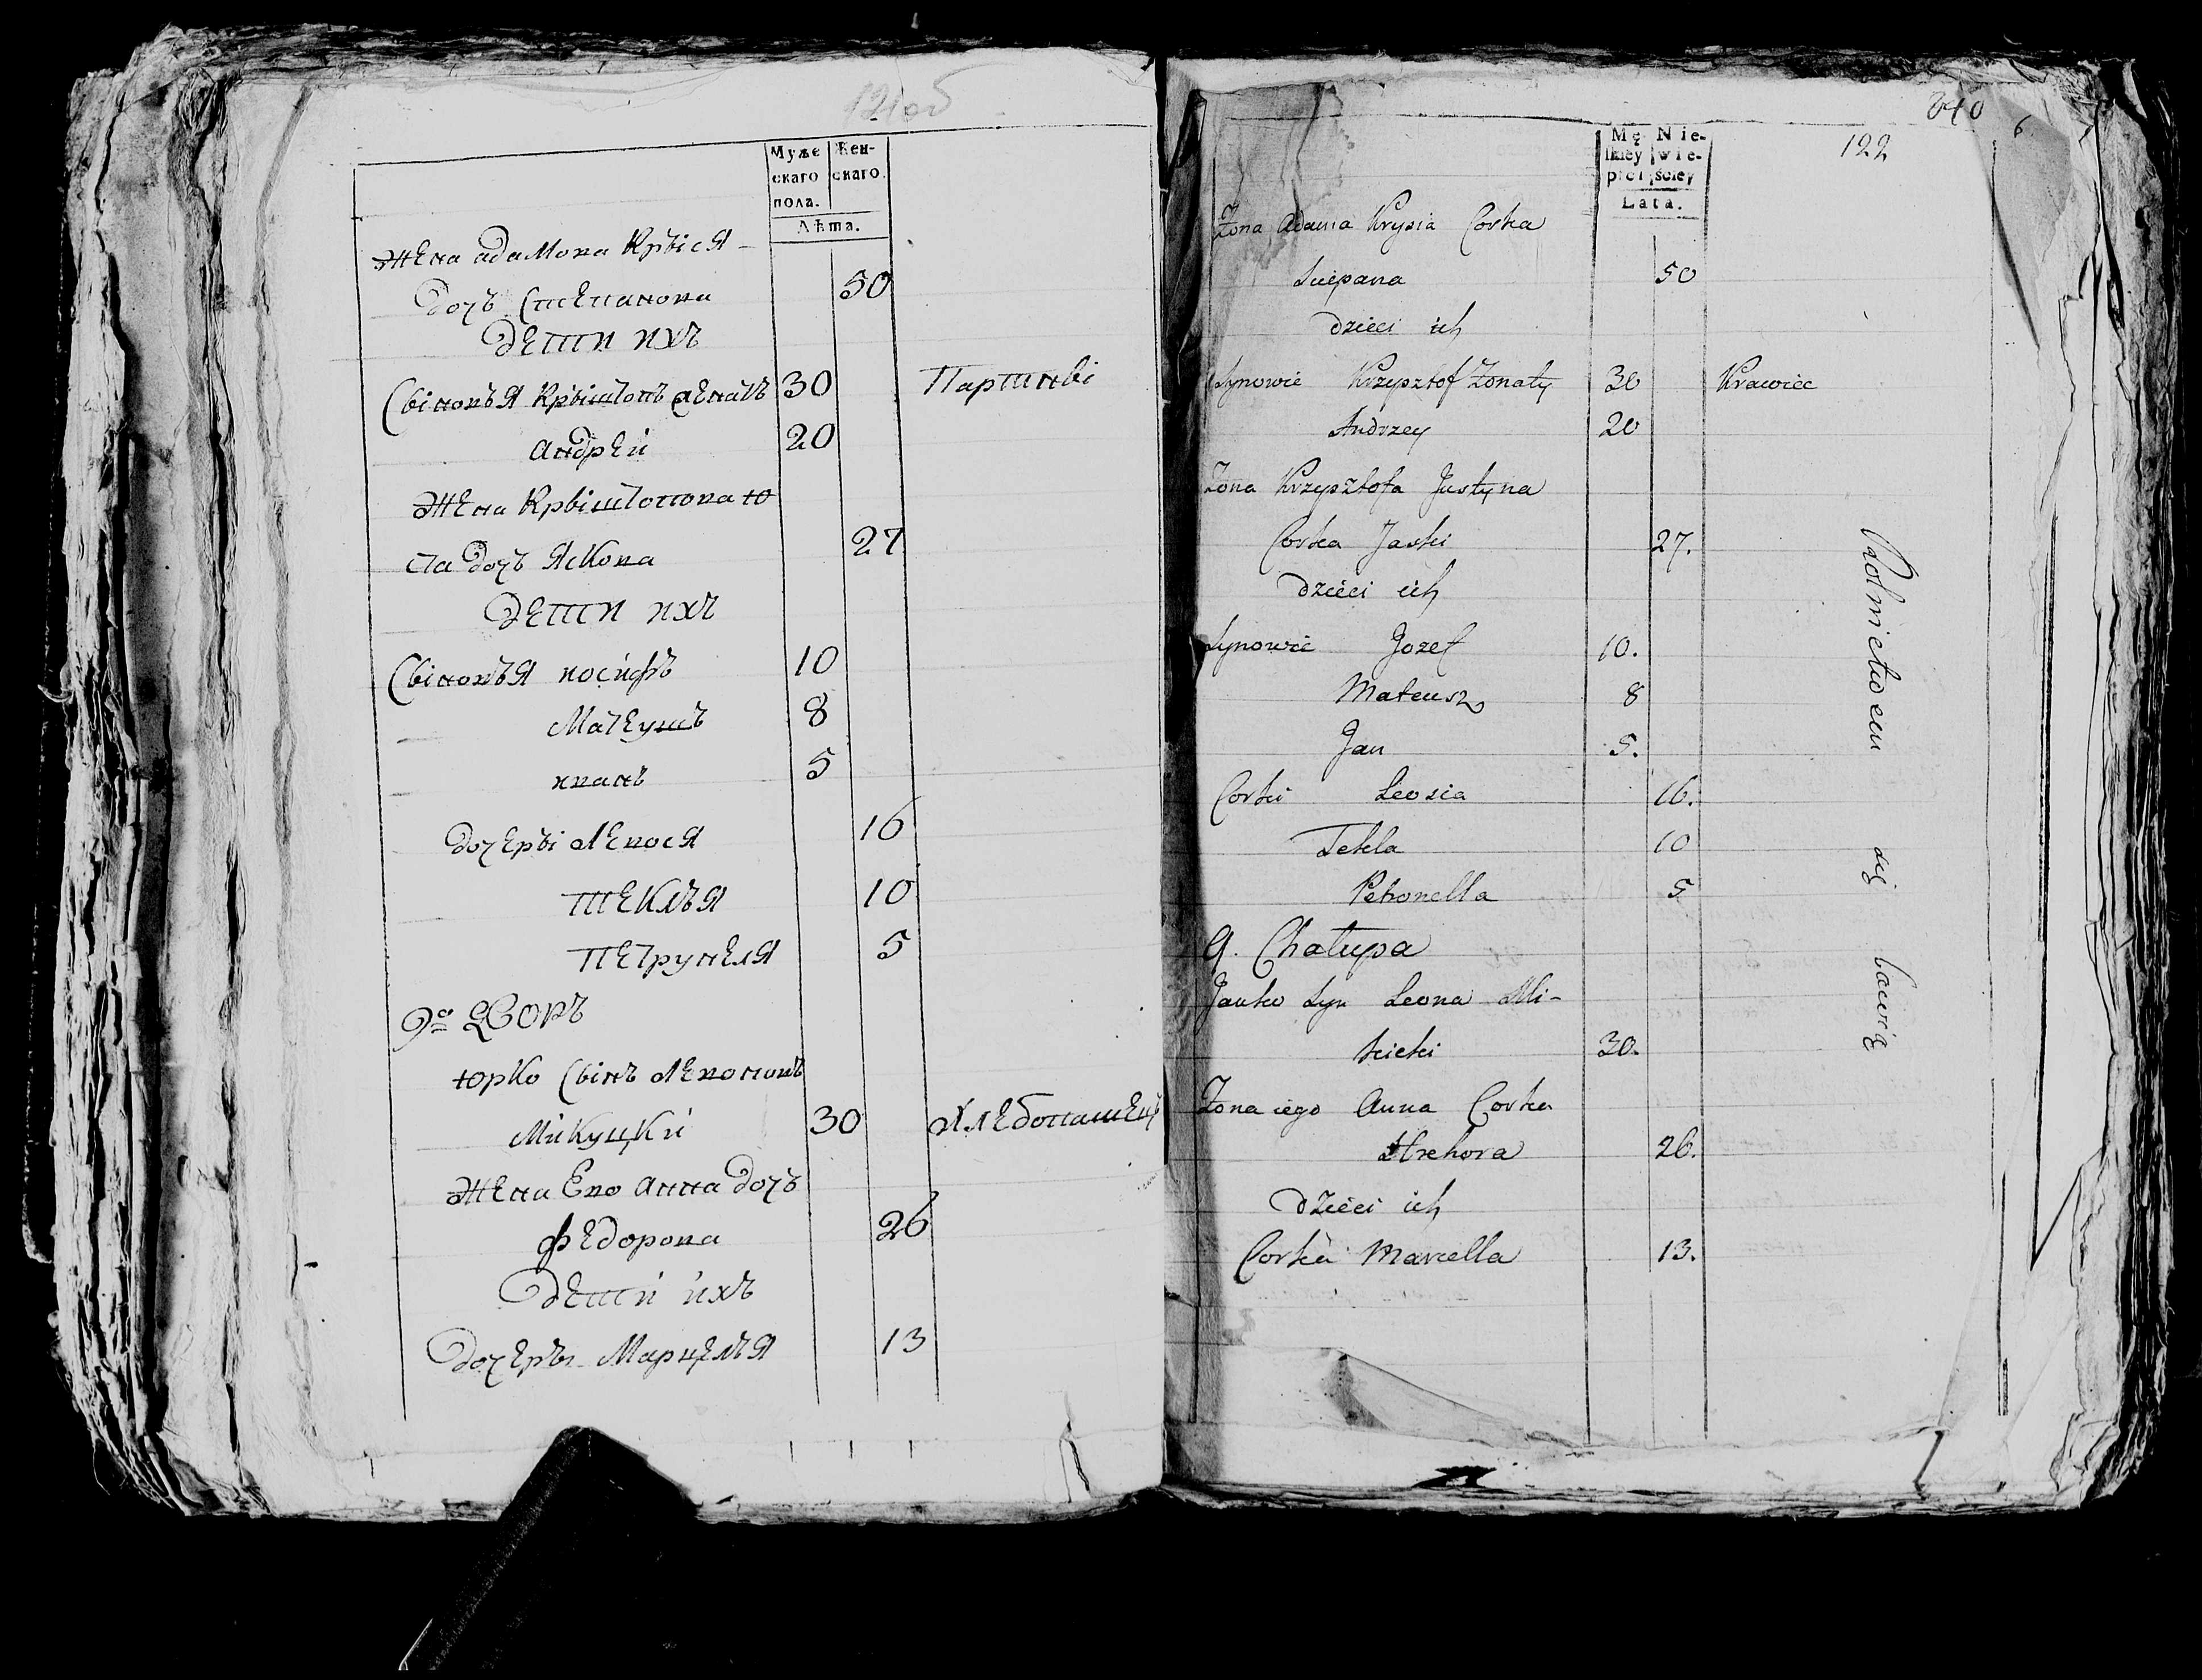 121об
Муже Жен-
скаго скаго.
пола.
Лѣта.
жена адамова Крыся
дочь Степанова 50
дети ихъ
Сыновья Крыштопъ женатъ 30
Андрей 20
жена Крыштопова Ю
ста дочь Яскова 27
дети ихъ
Сыновья иосифъ 10
Матеушъ 8
иванъ 5
дочеры Левося 16
Текля 10
Петрунеля 5
9й дворъ
Юрко Сынъ Левоновъ
Микуцки 30 Хлебопашец
жена Его Анна дочь
федорова 26
дети ихъ
дочеръ Марцеля 13
340
6
122
Mę Nie-
skiey wie-
płci ściey
Lata.
Żona Adama Krysia Corka
Sciepana 50
dzieci ich
Synowie Krzysztof Żonaty 30 Krawiec
Andrzey 20
Żona Krzysztofa Justyna
Corka Jaski 27.
dzieci ich
Synowie Jozef 10.
Mateusz 8
Jan 5.
Corki Leosia 16.
Tekla 10
Petronella 5
9. Chałupa
Syn Leona Mi-
30.
Żona iego Anna Corka
26.
dzieci ich
Corka Marcella 13.
Rolnictwem się bawią